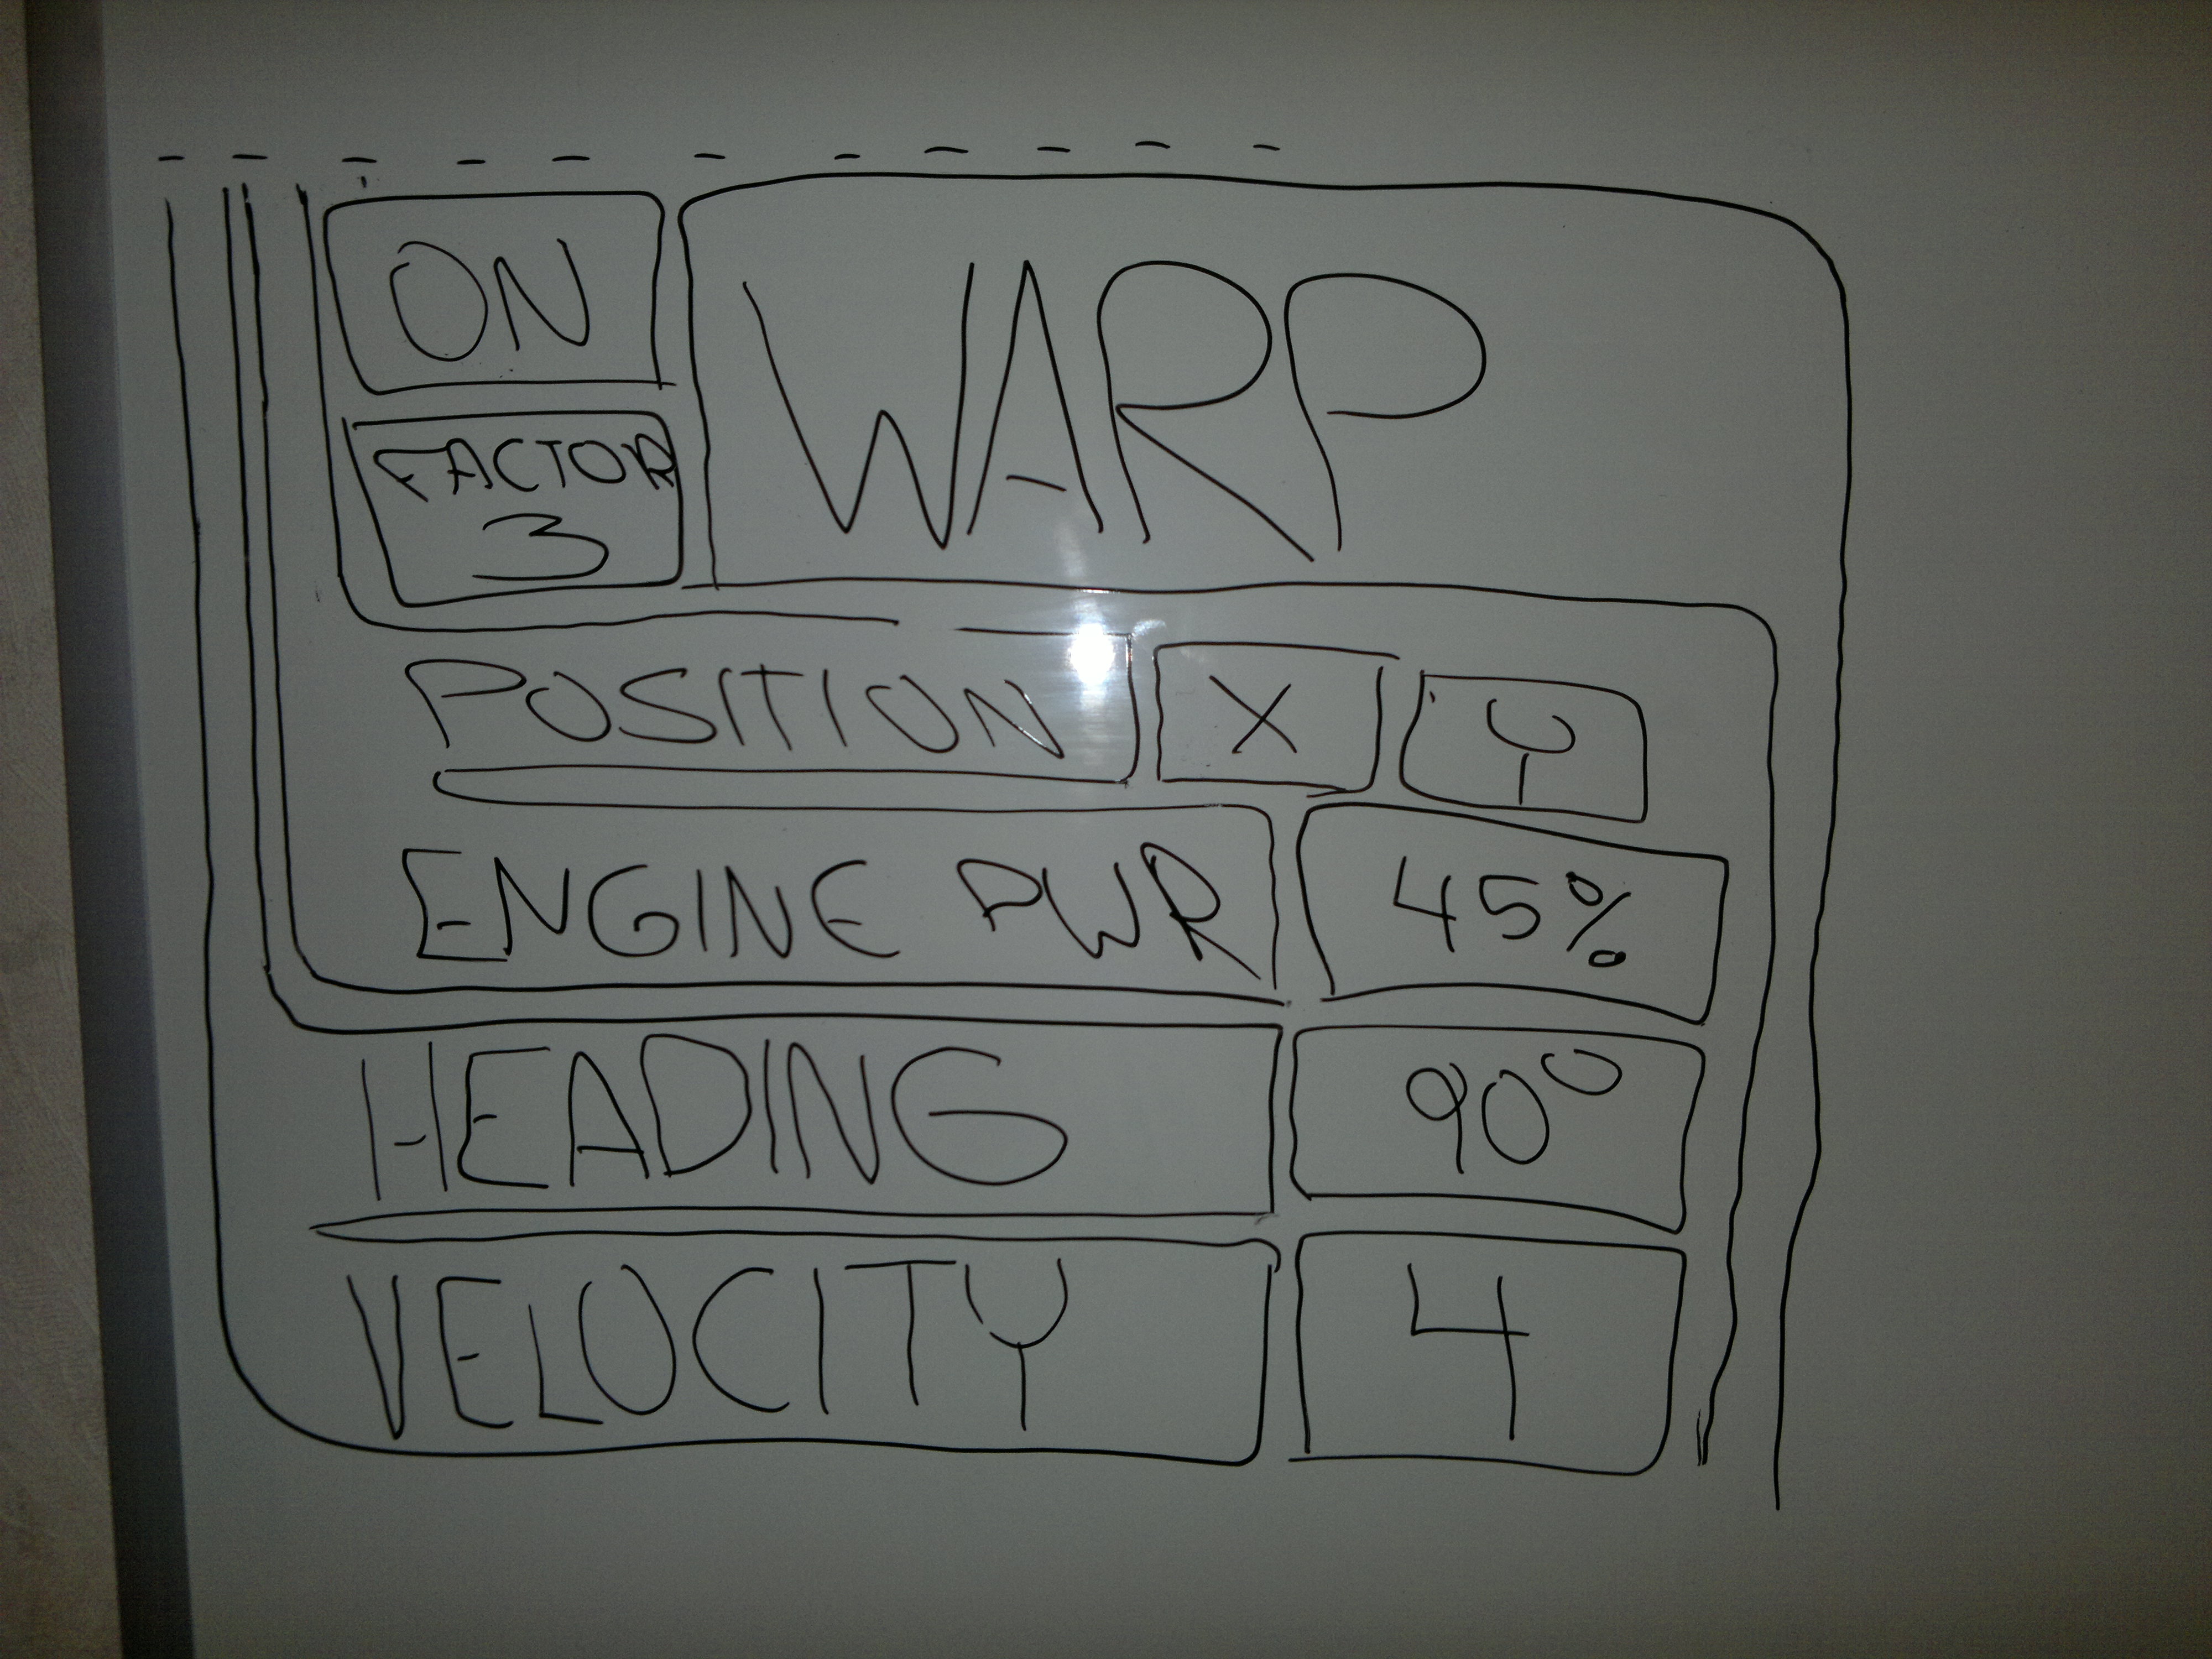 ON
WARP
FACTOR
3
POSITION X Y
ENGINE PWR 45%
HEADING 90°
VELOCITY 4